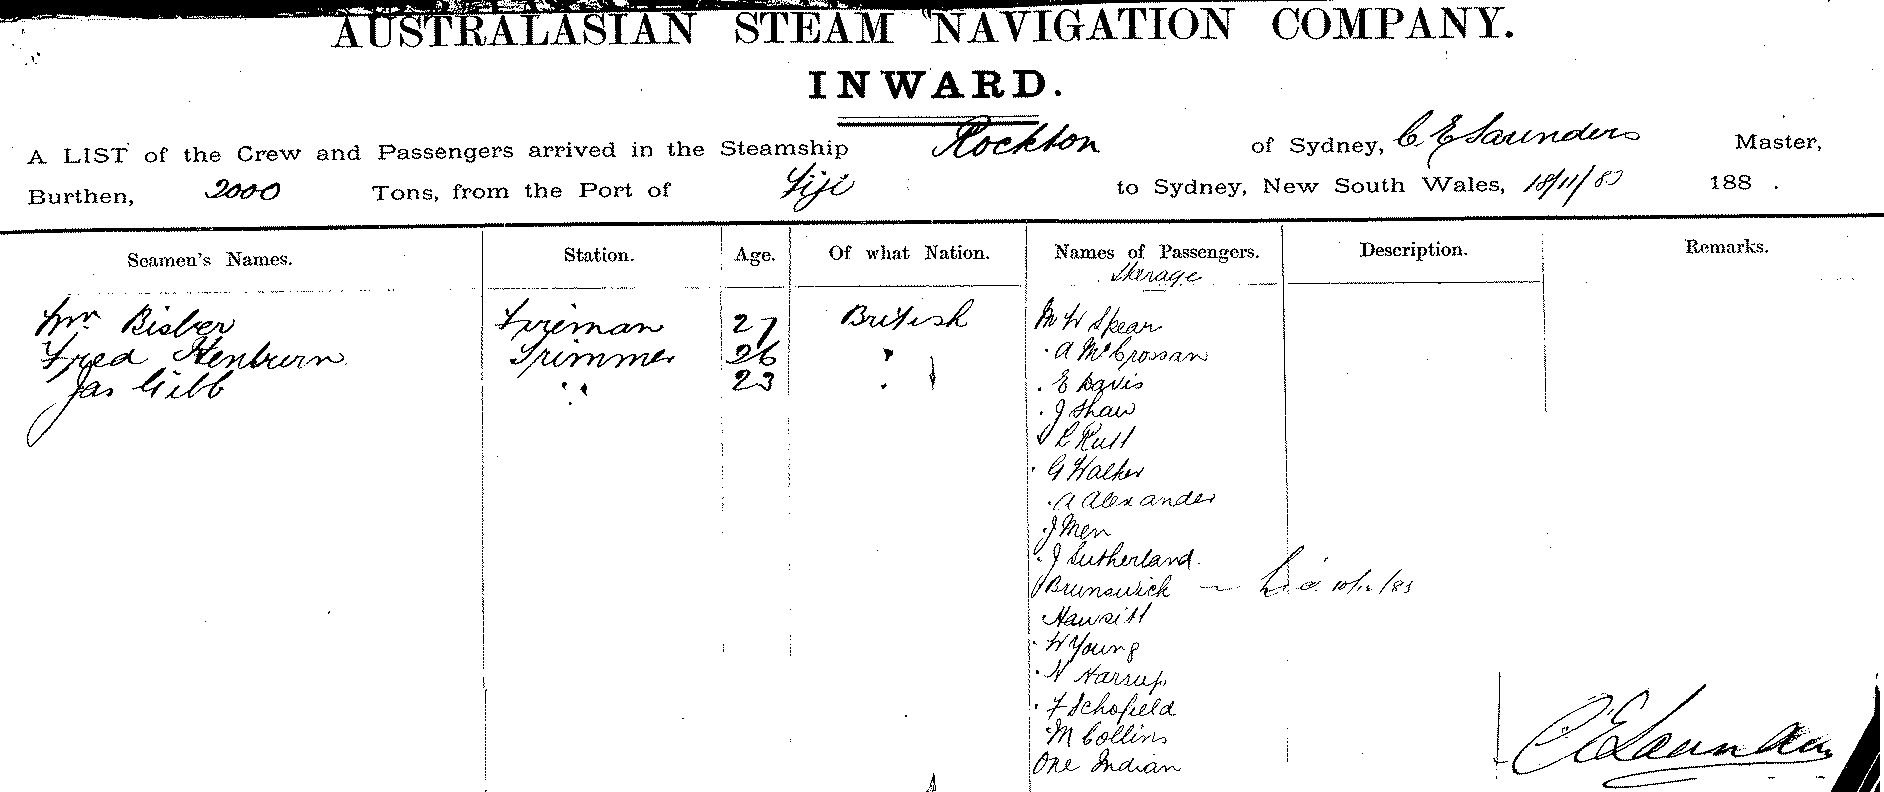 AUSTRALASIAN STEAM NAVIGATION COMPANY.
INWARD.
A LIST of the Crew and Passengers arrived in the Steamship Rockton of Sydney, C E Saunders Master,
Burthen, 2000 Tons, from the Port of Fiji to Sydney, New South Wales, 18/11/83 188 .
Seamen's Names. Station. Age. Of what Nation. Names of Passengers. Description. Remarks.
Sterage
Wm Bisber Fireman 27 British Mr W Spear
Fred Henburn Trimmer 26 " " A McCrossan
Jas Gibb " 23 " " E Davis
" J Shaw
" R Rutt
" G Walker
" A Alexander
" J Men
" J Sutherland
Brunswick — 10/12/83
" W Young
" H Harsup
" F Schofield
" M Collins
One Indian
C E Saunders